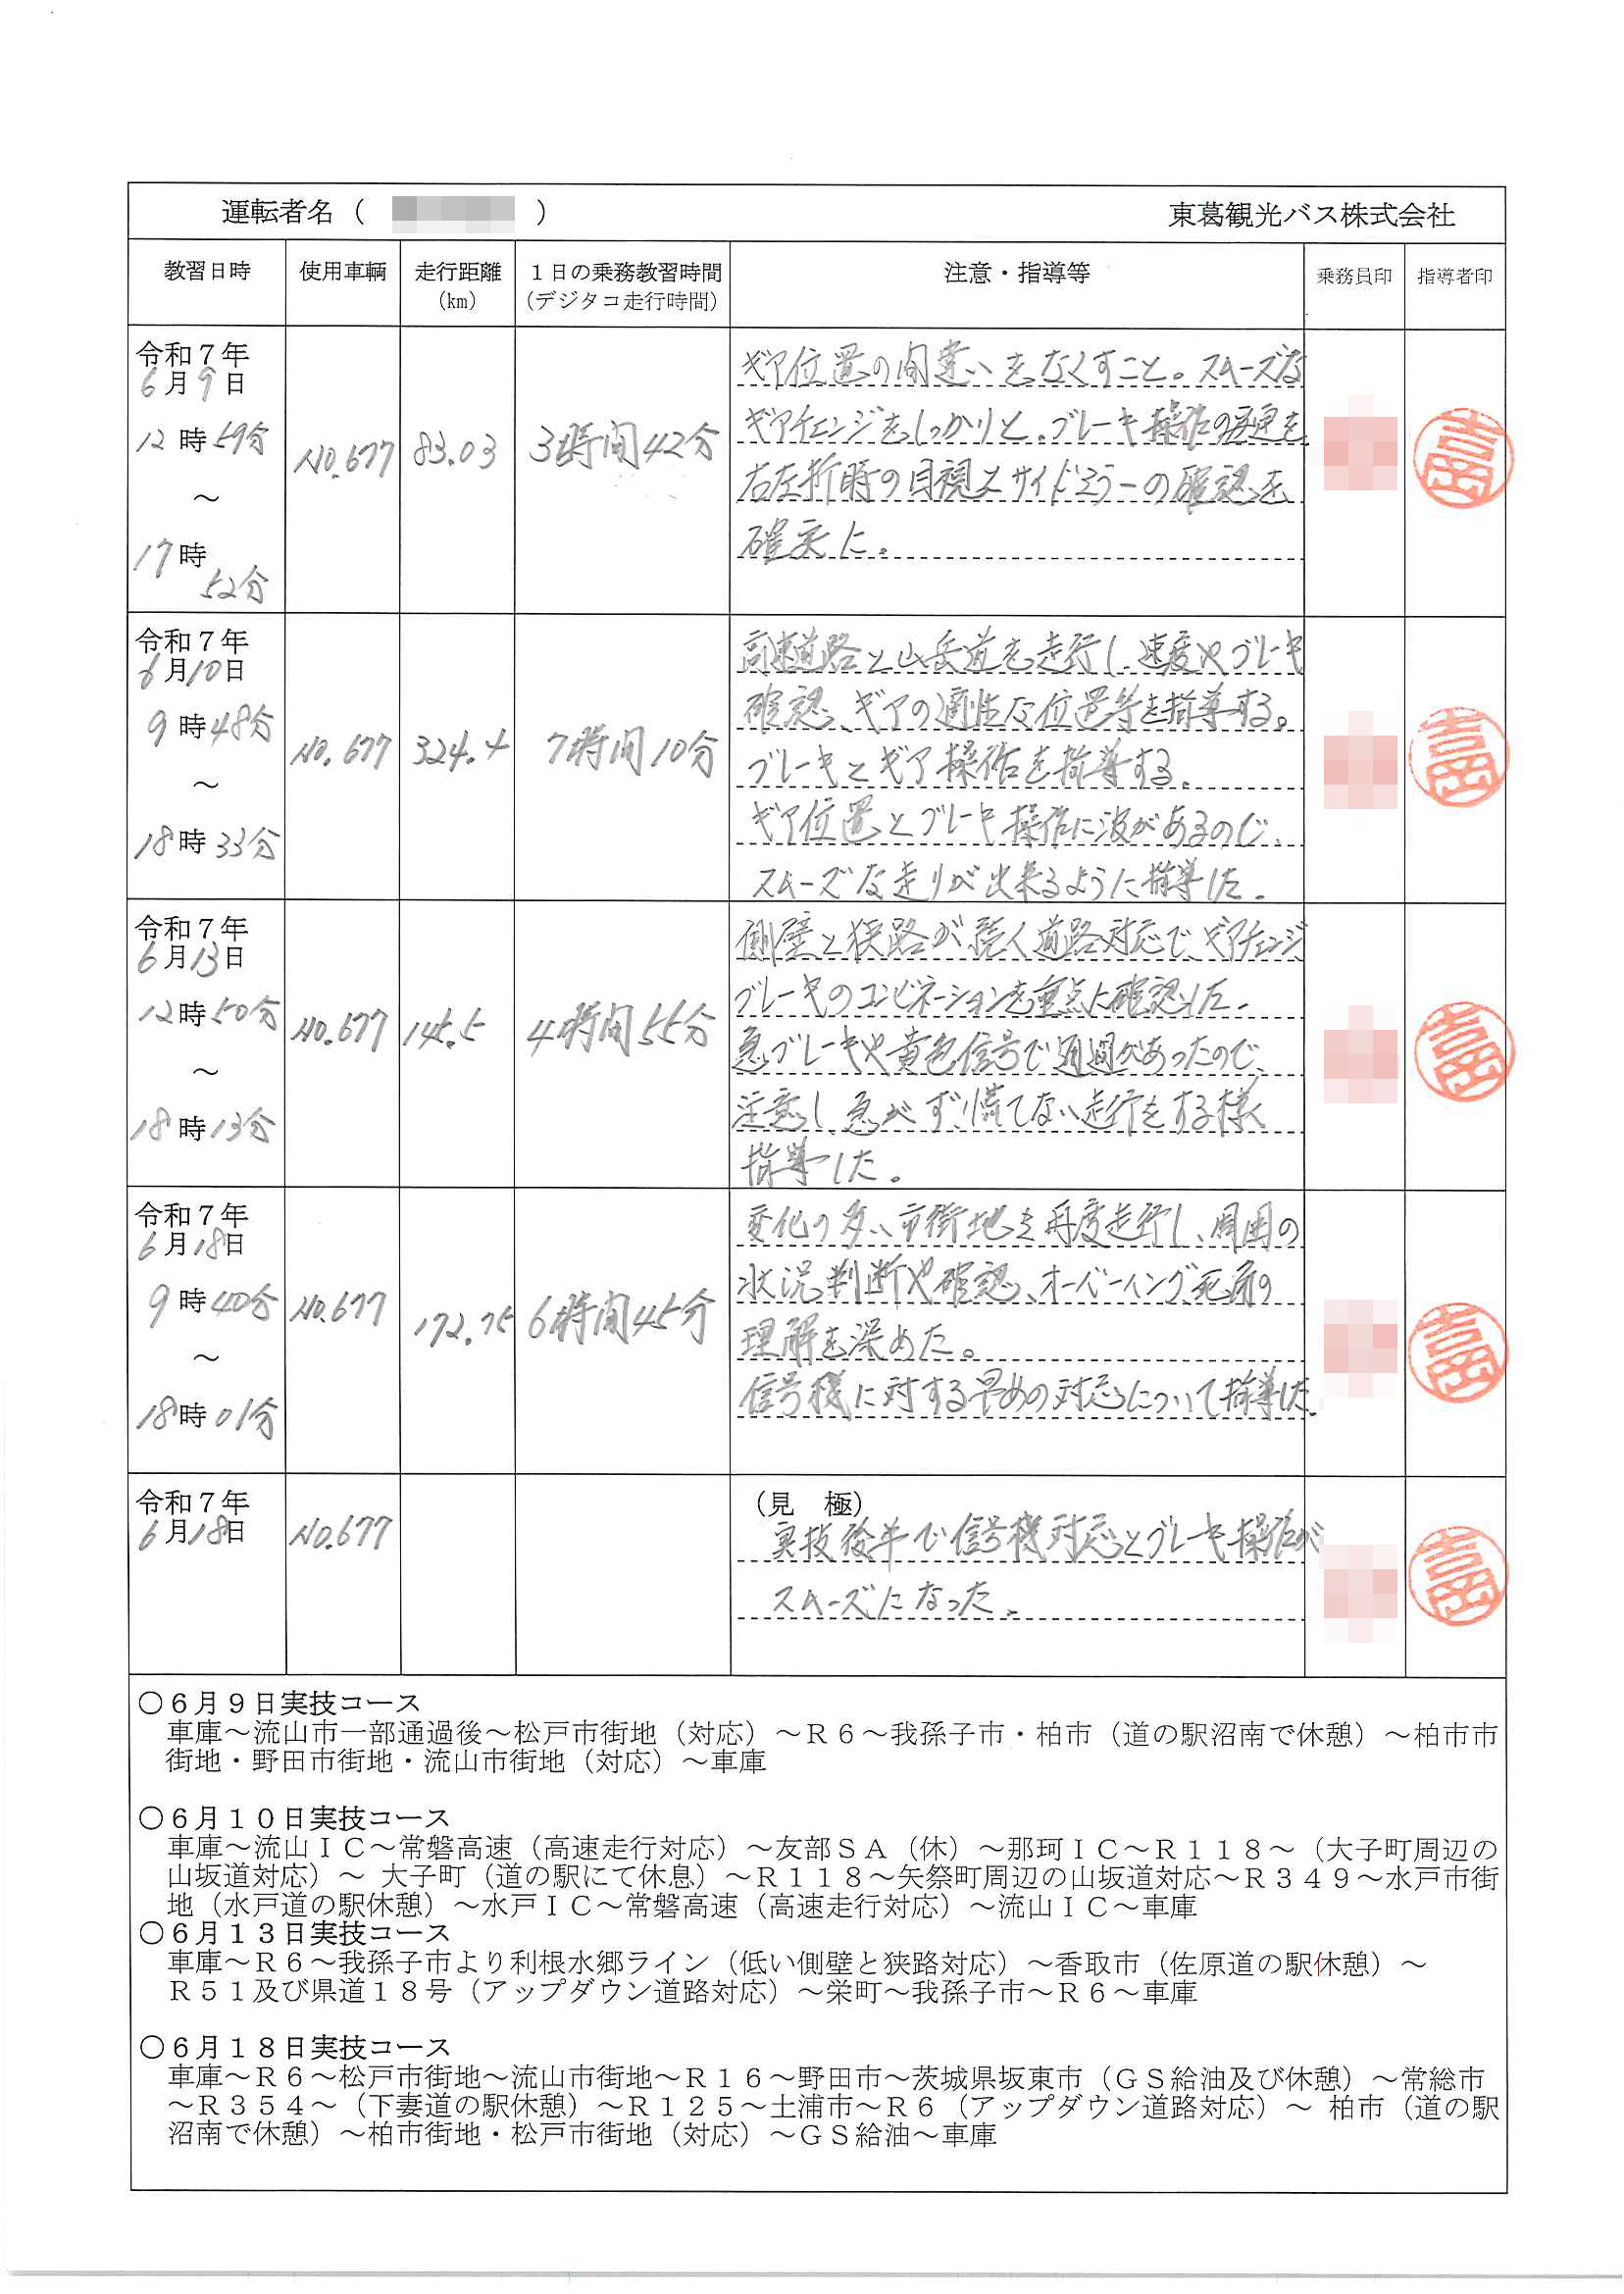 運転者名（　　　　）
東葛観光バス株式会社
教習日時　使用車輌　走行距離（km）　１日の乗務教習時間（デジタコ走行時間）　注意・指導等　乗務員印　指導者印
令和７年
6月9日
12時59分
～
17時
52分
No.677
83.03
3時間42分
ギア位置の間違いをなくすこと。スムーズな
ギアチェンジをしっかりと。ブレーキ操作の
右左折時の目視とサイドミラーの確認を
確実に。
令和７年
6月10日
9時48分
～
18時33分
No.677
324.4
7時間10分
高速道路と山岳道を走行し、速度やブレーキ
確認、ギアの適性な位置等を指導する。
ブレーキとギア操作を指導する。
ギア位置とブレーキ操作に波があるので、
スムーズな走りが出来るように指導した。
令和７年
6月13日
12時50分
～
18時13分
No.677
145.5
4時間55分
側壁と狭路が続く道路対応で、ギアチェンジ
ブレーキのコンビネーションを重点に確認した。
急ブレーキや黄色信号で通過があったので、
注意し、急がず、慌てない走行をする様
指導した。
令和７年
6月18日
9時40分
～
18時01分
No.677
172.75
6時間45分
変化の多い市街地を再度走行し、周囲の
状況判断や確認、オーバーハング、死角の
理解を深めた。
信号機に対する早めの対応について指導した。
令和７年
6月18日
No.677
（見　極）
実技後半で信号機対応とブレーキ操作が
スムーズになった。
○６月９日実技コース
車庫～流山市一部通過後～松戸市街地（対応）～Ｒ６～我孫子市・柏市（道の駅沼南で休憩）～柏市市
街地・野田市街地・流山市街地（対応）～車庫
○６月１０日実技コース
車庫～流山ＩＣ～常磐高速（高速走行対応）～友部ＳＡ（休）～那珂ＩＣ～Ｒ１１８～（大子町周辺の
山坂道対応）～ 大子町（道の駅にて休息）～Ｒ１１８～矢祭町周辺の山坂道対応～Ｒ３４９～水戸市街
地（水戸道の駅休憩）～水戸ＩＣ～常磐高速（高速走行対応）～流山ＩＣ～車庫
○６月１３日実技コース
車庫～Ｒ６～我孫子市より利根水郷ライン（低い側壁と狭路対応）～香取市（佐原道の駅休憩）～
Ｒ５１及び県道１８号（アップダウン道路対応）～栄町～我孫子市～Ｒ６～車庫
○６月１８日実技コース
車庫～Ｒ６～松戸市街地～流山市街地～Ｒ１６～野田市～茨城県坂東市（ＧＳ給油及び休憩）～常総市
～Ｒ３５４～（下妻道の駅休憩）～Ｒ１２５～土浦市～Ｒ６（アップダウン道路対応）～ 柏市（道の駅
沼南で休憩）～柏市街地・松戸市街地（対応）～ＧＳ給油～車庫